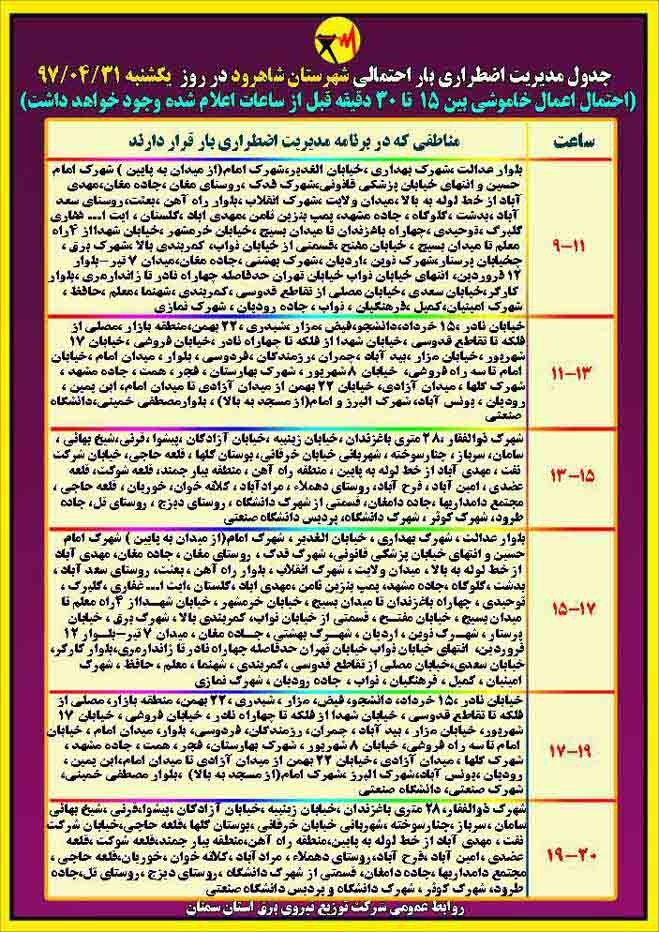 جدول مدیریت اضطراری بار احتمالی شهرستان شاهرود در روز یکشنبه ۹۷/۰۴/۳۱
(احتمال اعمال خاموشی بین ۱۵ تا ۳۰ دقیقه قبل از ساعات اعلام شده وجود خواهد داشت)
ساعت
مناطقی که در برنامه مدیریت اضطراری بار قرار دارند
۹-۱۱
بلوار عدالت ،شهرک بهداری ،خیابان الغدیر،شهرک امام(از میدان به پایین ) شهرک امام
حسین و انتهای خیابان پزشکی قانونی،شهرک فدک ،روستای مغان ،جاده مغان،مهدی
آباد از خط لوله به بالا،میدان ولایت ،شهرک انقلاب،بلوار راه آهن ،بعثت،روستای سعد
آباد ،بدشت ،کلوگاه ، جاده مشهد، پمپ بنزین ثامن ،مهدی اباد ،گلستان ، ایت ا... غفاری
گلبرگ ،توحیدی،چهاراه باغزندان تا میدان بسیج ،خیابان خرمشهر ،خیابان شهدااز ۴راه
معلم تا میدان بسیج ، خیابان مفتح ،قسمتی از خیابان نواب، کمربندی بالا ،شهرک برق ،
خیابان پرستار،شهرک نوین ،اردیان ،شهرک بهشتی ،جاده مغان،میدان ۷ تیر-بلوار
۱۲ فروردین، انتهای خیابان نواب خیابان تهران حدفاصله چهاراه نادر تا ژاندارمری،بلوار
کارگر،خیابان سعدی،خیابان مصلی از تقاطع قدوسی ،کمربندی ،شهنما ،معلم ،حافظ ،
شهرک امینیان،کمیل ،فرهنگیان ، نواب ، جاده رودیان ، شهرک نمازی
۱۱-۱۳
خیابان نادر ،۱۵ خرداد،دانشجو،فیض،مزار ،شیدری ،۲۲ بهمن،منطقه بازار، مصلی از
فلکه تا تقاطع قدوسی ،خیابان شهدا از فلکه تا چهاراه نادر ،خیابان فروغی ، خیابان ۱۷
شهریور ،خیابان مزار ،بید آباد ،چمران ،رزمندگان ،فردوسی ، بلوار ، میدان امام ، خیابان
امام تا سه راه فروغی، خیابان ۸ شهریور ، شهرک بهارستان ، فجر ، همت ، جاده مشهد ،
شهرک گلها ، میدان آزادی ، خیابان ۲۲ بهمن از میدان آزادی تا میدان امام، ابن یمین ،
رودیان ، یونس آباد، شهرک البرز و امام(از مسجد به بالا) ، بلوارمصطفی خمینی،دانشگاه
صنعتی
۱۳-۱۵
شهرک ذوالفقار ،۲۸ متری باغزندان ،خیابان زینبیه ،خیابان آزادگان ،پیشوا، قرنی،شیخ بهائی ،
سامان، سرباز ، چنارسوخته ، شهربانی خیابان خرقانی، بوستان گلها ، قلعه حاجی، خیابان شرکت
نفت ، مهدی آباد از خط لوله به پایین ، منطقه راه آهن ، منطقه بیار جمند، قلعه شوکت، قلعه
عضدی ، امین آباد ، فرح آباد، روستای دهملاء ، مرادآباد ،کلاته خوان، خوریان ، قلعه حاجی ،
مجتمع دامداریها ،جاده دامغان، قسمتی از شهرک دانشگاه ، روستای دیزج ، روستای تل، جاده
طرود، شهرک کوثر ، شهرک دانشگاه، پردیس دانشگاه صنعتی
۱۵-۱۷
بلوار عدالت ، شهرک بهداری ، خیابان الغدیر ، شهرک امام(از میدان به پایین) شهرک امام
حسین و انتهای خیابان پزشکی قانونی، شهرک فدک ، روستای مغان ، جاده مغان، مهدی آباد
از خط لوله به بالا ، میدان ولایت ، شهرک انقلاب ، بلوار راه آهن ، بعثت، روستای سعد آباد ،
بدشت ،کلوگاه ،جاده مشهد، پمپ بنزین ثامن، مهدی اباد ،گلستان ،ایت ا...غفاری، گلبرگ ،
توحیدی ، چهاراه باغزندان تا میدان بسیج ، خیابان خرمشهر ، خیابان شهدااز ۴راه معلم تا
میدان بسیج ، خیابان مفتح ، قسمتی از خیابان نواب، کمربندی بالا ، شهرک برق ، خیابان
پرستار ، شهرک نوین ، اردیان ، شهرک بهشتی ، جاده مغان ، میدان ۷ تیر-بلوار ۱۲
فروردین، انتهای خیابان نواب خیابان تهران حدفاصله چهاراه نادر تا ژاندارمری،بلوار کارگر،
خیابان سعدی،خیابان مصلی از تقاطع قدوسی، کمربندی ، شهنما ، معلم ، حافظ ، شهرک
امینیان ، کمیل ، فرهنگیان ، نواب ، جاده رودیان ، شهرک نمازی
۱۷-۱۹
خیابان نادر ،۱۵ خرداد، دانشجو، فیض، مزار ، شیدری ،۲۲ بهمن، منطقه بازار، مصلی از
فلکه تا تقاطع قدوسی ، خیابان شهدا از فلکه تا چهاراه نادر ، خیابان فروغی ، خیابان ۱۷
شهریور، خیابان مزار ، بید آباد ، چمران ، رزمندگان، فردوسی، بلوار، میدان امام ، خیابان
امام تا سه راه فروغی، خیابان ۸ شهریور ، شهرک بهارستان، فجر ، همت ، جاده مشهد ،
شهرک گلها ، میدان آزادی ، خیابان ۲۲ بهمن از میدان آزادی تا میدان امام،ابن یمین ،
رودیان ، یونس آباد،شهرک البرز ،شهرک امام(از مسجد به بالا) ،بلوار مصطفی خمینی،
شهرک صنعتی، دانشگاه صنعتی
۱۹-۲۰
شهرک ذوالفقار، ۲۸ متری باغزندان، خیابان زینبیه ،خیابان آزادگان ،پیشوا،قرنی ،شیخ بهائی
سامان، سرباز ،چنارسوخته، شهربانی خیابان خرقانی ،بوستان گلها ،قلعه حاجی،خیابان شرکت
نفت ، مهدی آباد از خط لوله به پایین،منطقه راه آهن،منطقه بیار جمند،قلعه شوکت، قلعه
عضدی ، امین آباد ،فرح آباد،روستای دهملاء ، مراد آباد، کلاته خوان، خوریان،قلعه حاجی ،
مجتمع دامداریها ،جاده دامغان، قسمتی از شهرک دانشگاه ،روستای دیزج ، روستای تل،جاده
طرود، شهرک کوثر ، شهرک دانشگاه و پردیس دانشگاه صنعتی
روابط عمومی شرکت توزیع نیروی برق استان سمنان